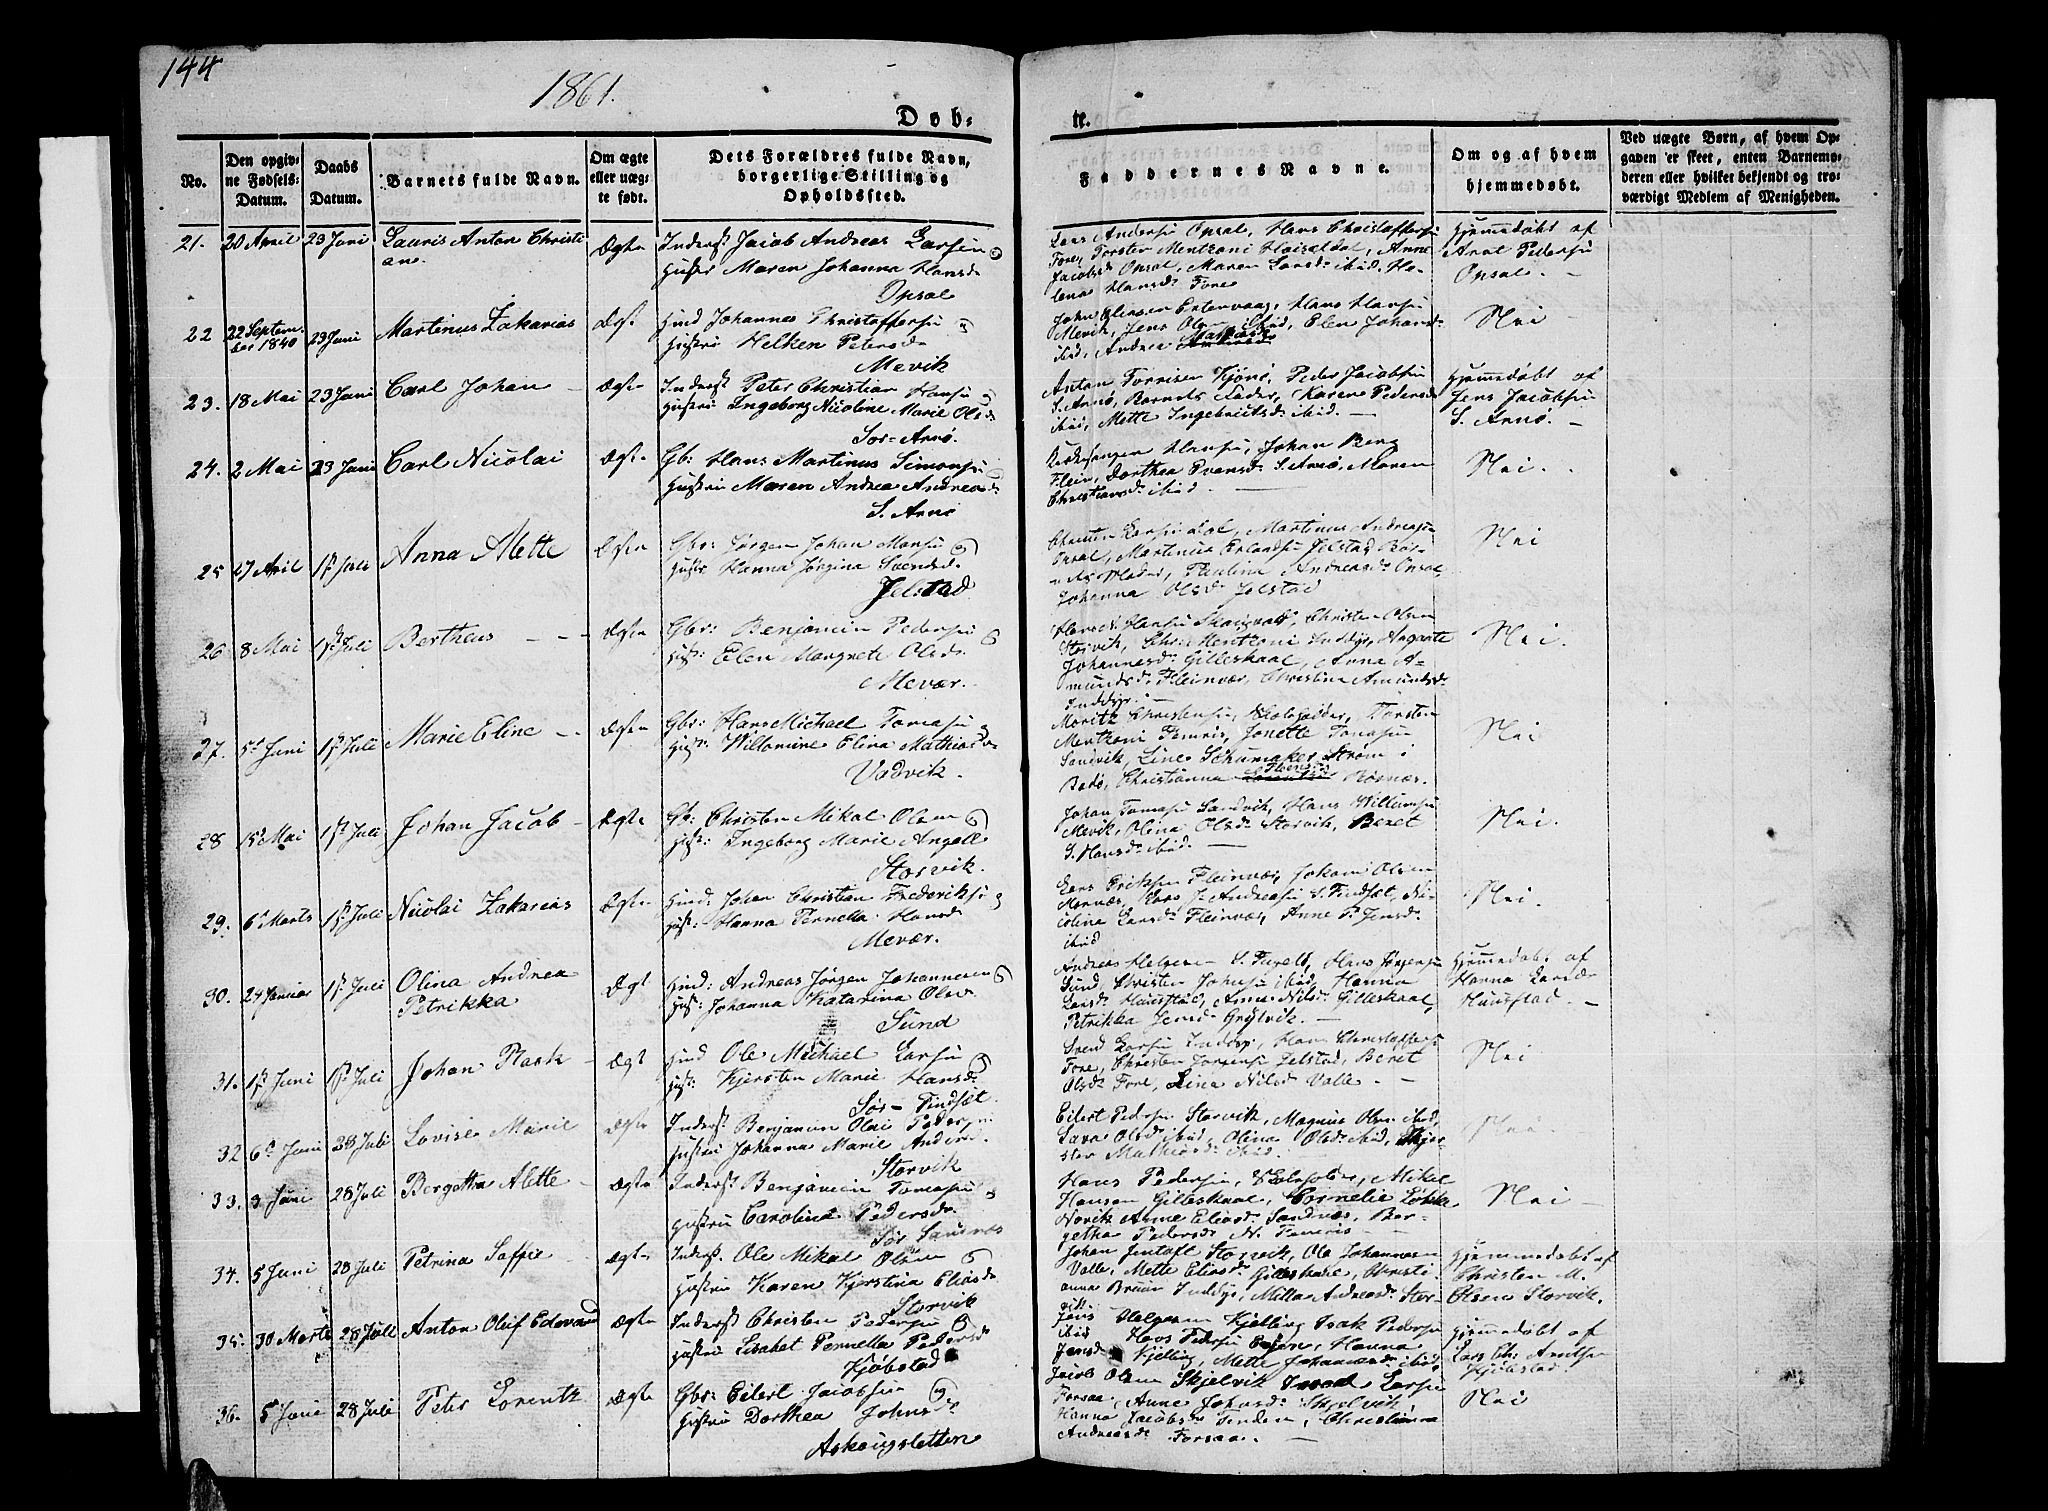 144
1861.
Døb-
te.
No.
Den opgivne Fødsels-Datum.
Daabs Datum.
Barnets fulde Navn.
Om ægte eller uægte født.
Dets Forældres fulde Navn, borgerlige Stilling og Opholdssted.
Faddernes Navne.
Om og af hvem hjemmedøbt.
Ved uægte Børn, af hvem Opgaven er skeet, enten Barnemoderen eller hvilket bekjendt og troværdigt Medlem af Menigheden.
21. 20 April 23 Juni Lauris Anton Christi
ane. Ægte Inderst Jacob Andreas Larsen
Hustr Maren Johanna Hansd
Opsal
Lars Andersen Opsal, Hans Christoffersen
Fore, Torsten Mentzoni, Anne
Jacobsd Opsal, Maren Larsd ibid, He-
lena Hansd Fore
Hjemmedøbt af
Arat Pedersen
Opsal. -
22 22 Septem-
ber 1840 23 Juni Martinus Zakarias Ægt Huusd Johannes Christoffersen
Hustru Helken Petersd
Mevik
John Olensen, Hans Hansen
Mevik, Jens Olsen ibid, Elen Johansd
ibid, Andrea
Nei
23. 18 Mai 23 Juni Carl Johan - Ægte Inderst Peter Christian Hansen
Hustru Ingeborg Nicoline Marie Olsd
Sør-Arnø.
Anton Torrisen Kjønø, Peder Jacobsen
S. Arnø, Barnets Fader, Karen Pedersd
ibid, Mette Ingebrietsd ibid. -
Hjemmedøbt af
Jens Jacobsen
S. Arnø. -
24. 2 Mai 23 Juni Carl Nicolai Ægte Gb: Hans Martinus Simonsen
Hustru Maren Andrea Andreasd
S. Arnø
Kirkesanger Hansen, Johan Berg
Flein, Dorthea Evensd S. Arnø, Maren
Christiansd ibid. -
Nei.
25 27 April 1st Juli Anna Alette Ægte Gbr: Jørgen Johan Monsen
Hustr Hanna Jørgina Svensd
Jelstad
Larsen, Martinus Andreasen
Opsal, Martinus Erlandsen Jelstad
Fader, Paulina Andreasd Opsal,
Johanna Olsd Jelstad
Nei
26 8 Mai 1st Juli Bertheus - - - Ægte Gbr: Benjamin Pedersen
Hust: Elen Margrete Olsd
Mevær.
Hans Hansen, Christen Olsen
Storvik, Chr: Mentzoni Inddyr, Angrete
Johannesd Gilleskaal, Anna A-
mundsd Fleinvær, Christine Amundsd
Inddyr -
Nei.
27. 5d Juni 1st Juli Marie Eline - - Ægte Gbr: Hans Michael Tomasen
Hust: Willomine Elina Mathiasd
Vadvik.
Moritz Christensen, Skoleholder, Torsten
Mentzoni, Jonette Tomasen
Sandvik, Line Schumaker Strøm i
Bodø, Christianna
Nei
28 15d Mai 1st Juli Johan Jacob - Ægte Gb: Christen Mikal Olsen
Hust: Ingeborg Marie Angell
Storvik.
Johan Tomasen Sandvik, Hans Willumsen
Mevik, Olina Olsd Storvik, Beret
J. Hansd ibid. -
Nei.
29. 6d Marts 1st Juli Nicolai Zakarias Ægte Huusd: Johan Christian Frederiksen
Hust: Hanna Pernella Hansd
Mevær.
Lars Eriksen Fleinvær, Johan Olsen
Andreasen S. Findsæt, Ni-
coline Larsd Fleinvær, Anne P. Jensd
ibid
Nei.
30. 24 Januar 1st Juli Olina Andrea
Petrikka Ægt Huusd: Andreas Jørgen Johannesen
Hust: Johanna Katarina Olsd
Sund
Andreas Helgesen S. Fugelø, Hans Jørgensen
Sund, Christen Johnsen ibid, Hanna
Larsd, Anne Nilsd Gilleskaal,
Petrikka Jensd Grytvik. -
Hjemmedøbt af
Hanna Larsd
31. 1st Juni 1st Juli Johan - Ægt Huusd Ole Michael Larsen
Hust: Kjersten Marie Hansd
Sør-Findsæt.
Svend Larsen Inddyr, Hans Christoffersen
Fore, Christen Jørgensen Jelstad, Beret
Olsd Fore, Lina Nilsd Valle. -
Nei
32 6d Juni 28 Juli Lovise Marie Ægte Inderst Benjamin Olai Pedersen
Hustru Johanna Marie Andersd
Storvik
Eilert Pedersen Storvik, Magnus Olsen ibid,
Sara Olsd ibid, Olina Olsd ibid, Kjer-
sten Mathiasd ibid.
Nei
33. 3 Juni 28 Juli Bergetha Alette - Ægte Inderst Benjamin Tomasen
Hustru Carolina Pedersd
Sør Sandnes
Hans Pedersen, Skoleholder, Mikal
Hansen Gilleskaal, Cornelie Løkke
Norvik Anne Eliasd Sandnes, Ber-
getha Pedersd N. -
Nei -
34. 5 Juni 28 Juli Petrina Soffie - Ægte Inderst. Ole Mikal Olsen
Hustru Karen Kjerstina Eliasd
Storvik
Johan Jentoft Storvik, Ole Johannesen
Valle, Mette Eliasd Gilleskaal, Christi-
anna Bruun Inddyr, Milla Andreasd Stor-
vik.
Hjemmedøbt af
Christen M.
Olsen Storvik.
35. 30 Marts 28 Juli Anton Oluf Edevard Ægte Inderst Christen Pedersen
Hustru Lisabet Pernella Pedersd
Kjøbstad
Jens Helgesen Kjelling, Isak Pedersen
ibid, Hans Pedersen, Hanna
Jensd Kjelling, Mette Johannesd ibid,
Hjemmedøbt af
Lars Chr: Arntsen
Kjøbstad
36. 5 Juni 28 Juli Peter Lorentz Ægte Gbr: Eilert Jacobsen
Hustru Dorthea Johnsd
Askougsletten
Jacob Olsen Skjelvik, Larsen
Forsaa, Anne Johnsd Skjelvik,
Hanna Jacobsd, Christianna
Andreasd Forsaa. -
Nei